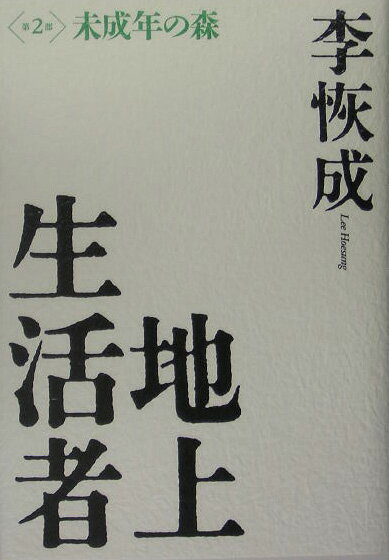 〈第2部〉未成年の森
李恢成
Lee Hoesung
地上
生活者